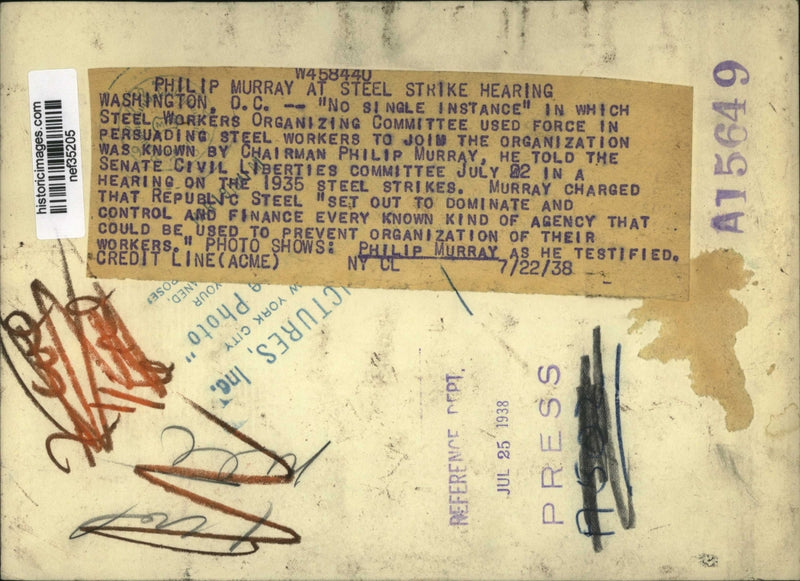 W458440
PHILIP MURRAY AT STEEL STRIKE HEARING
WASHINGTON, D.C. -- "NO SINGLE INSTANCE" IN WHICH
STEEL WORKERS ORGANIZING COMMITTEE USED FORCE IN
PERSUADING STEEL WORKERS TO JOIN THE ORGANIZATION
WAS KNOWN BY CHAIRMAN PHILIP MURRAY, HE TOLD THE
SENATE CIVIL LIBERTIES COMMITTEE JULY 22 IN A
HEARING ON THE 1935 STEEL STRIKES. MURRAY CHARGED
THAT REPUBLIC STEEL "SET OUT TO DOMINATE AND
CONTROL AND FINANCE EVERY KNOWN KIND OF AGENCY THAT
COULD BE USED TO PREVENT ORGANIZATION OF THEIR
WORKERS." PHOTO SHOWS: PHILIP MURRAY AS HE TESTIFIED.
CREDIT LINE(ACME) NY CL 7/22/38
historicimages.com
nef35205
A15649
ICTURES, Inc.
NEW YORK CITY
a Photo"
YOUR
REFERENCE DEPT.
JUL 25 1938
PRESS